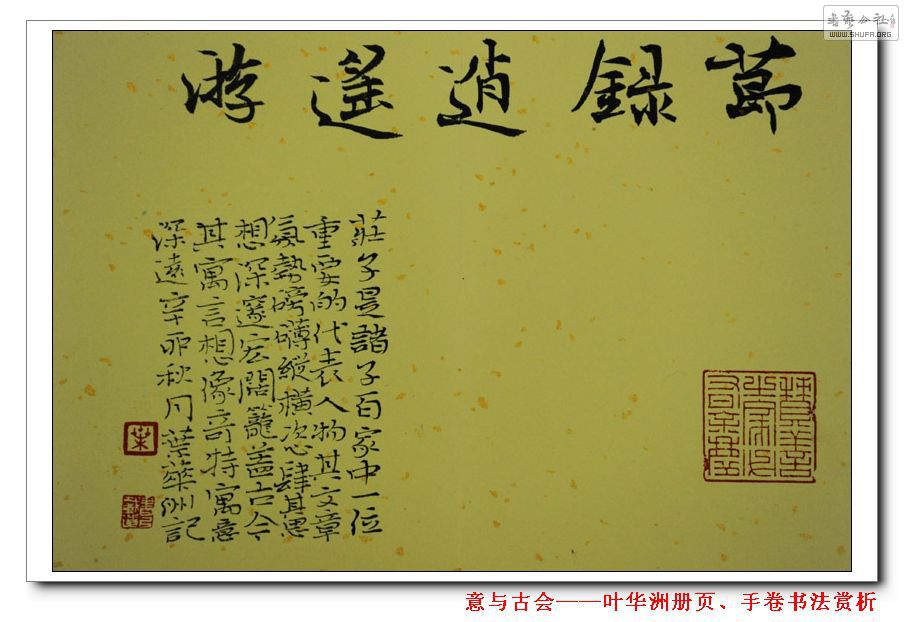 書藝公社
WWW.SHUFA.ORG
莭錄逍遙游
莊子是諸子百家中一位
重要的代表人物其文章
氣勢磅礴縱橫恣肆其思
想深邃宏闊籠蓋古今
其寓言想像奇特寓意
深遠辛卯秋月葉華洲記
葉
意与古会——叶华洲册页、手卷书法赏析